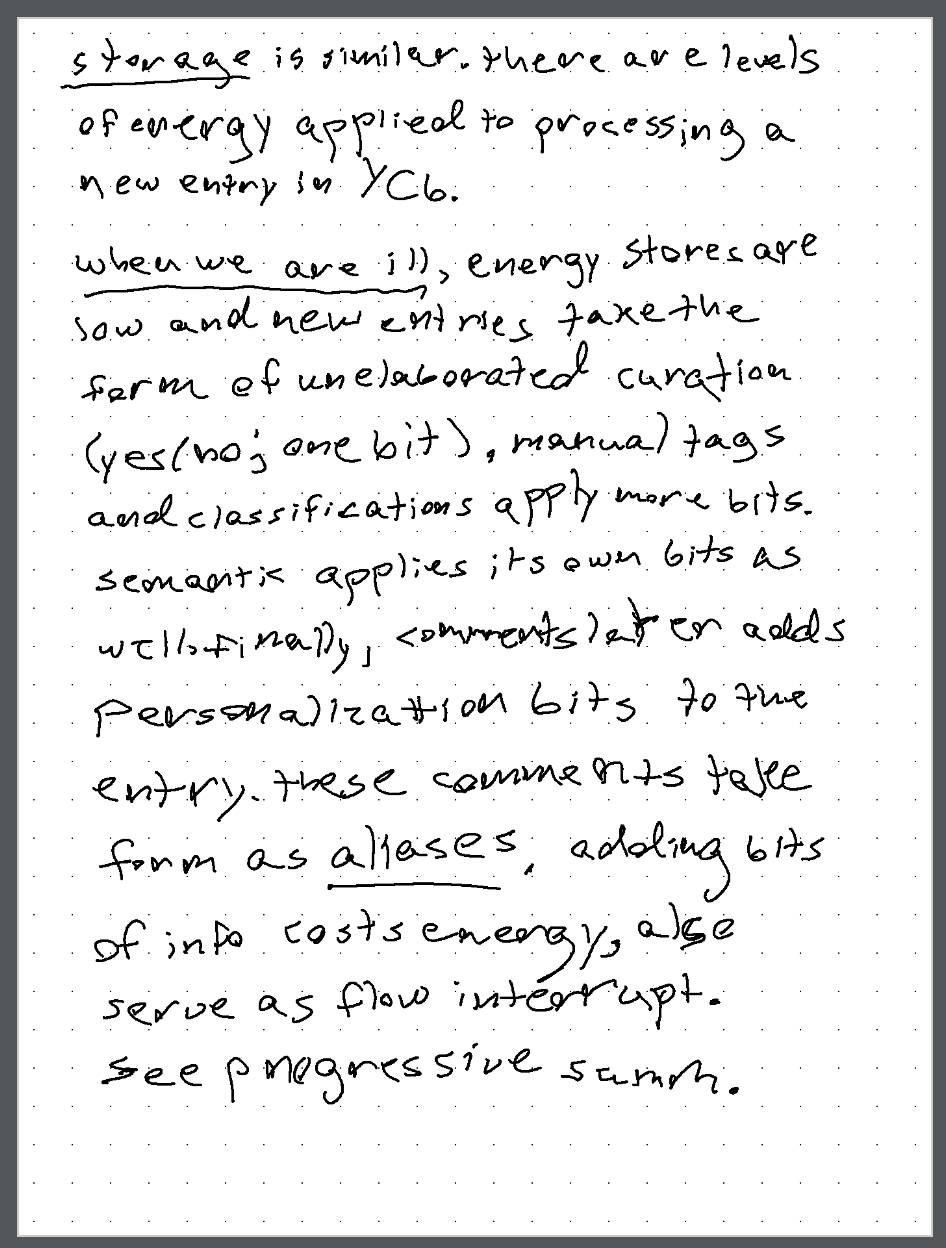 storage is similar. there are levels
of energy applied to processing a
new entry in YCb.
when we are ill, energy stores are
low and new entries take the
form of unelaborated curation
(yes/no; one bit), manual tags
and classifications apply more bits.
semantic applies its own bits as
well. finally, comments later adds
personalization bits to the
entry. these comments take
form as aliases, adding bits
of info costs energy, also
serve as flow interrupt.
see progressive summ.